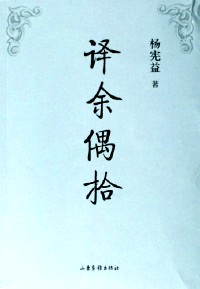 译余偶拾
杨宪益 著
山东画报出版社